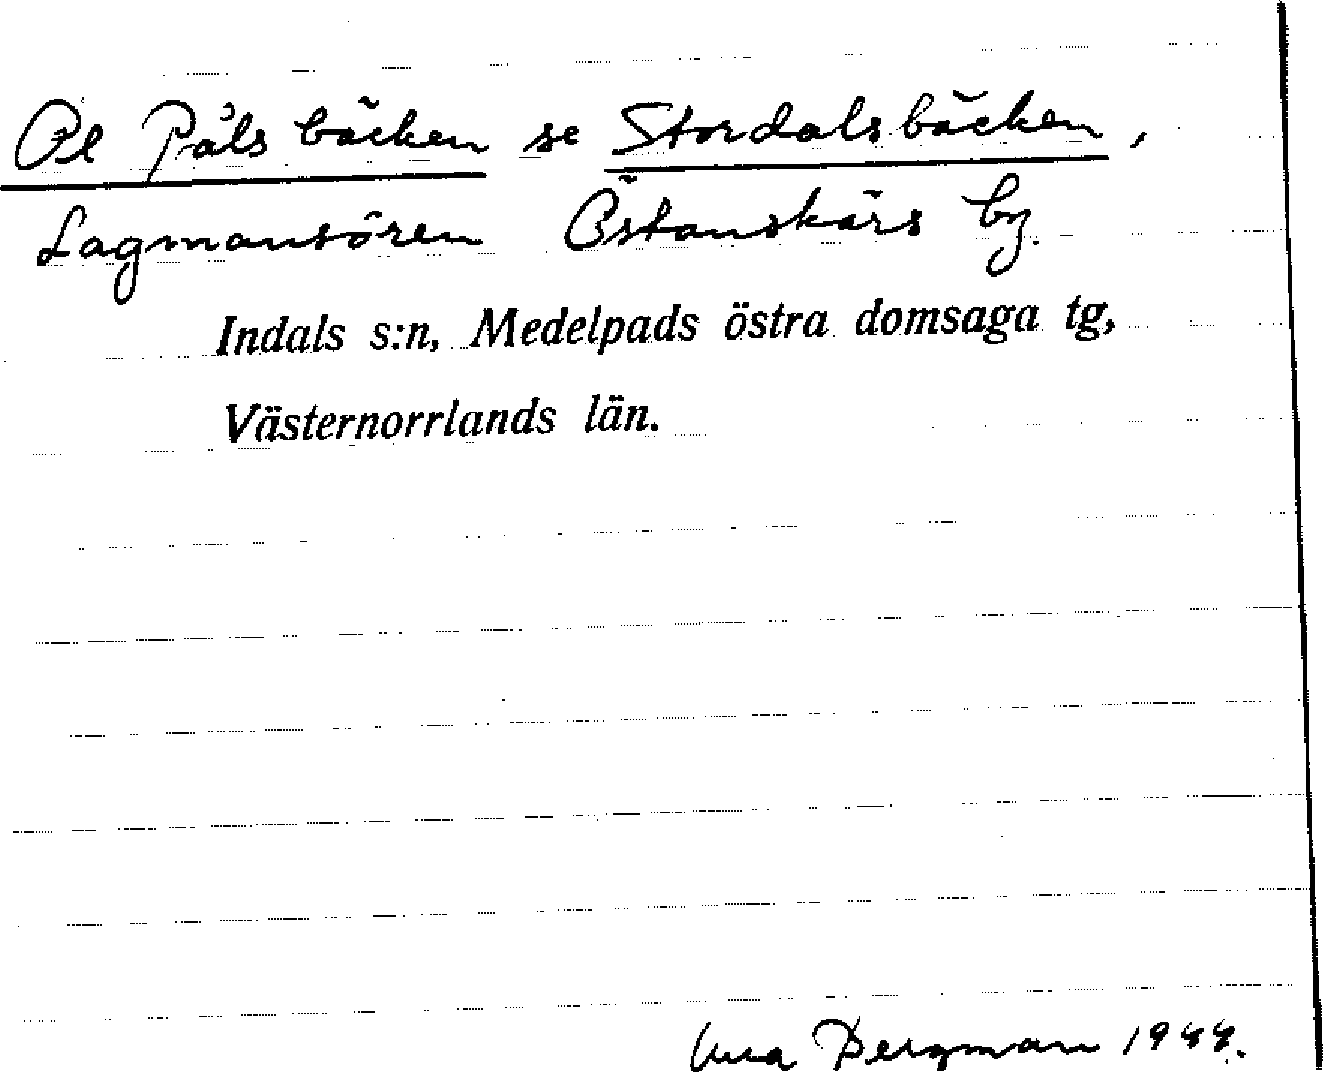 Ol Påls bäcken se Stordalsbäcken,
Lagmansören Östanskärs by.
Indals s:n, Medelpads östra domsaga tg,
Västernorrlands län.
Bergman 1944.